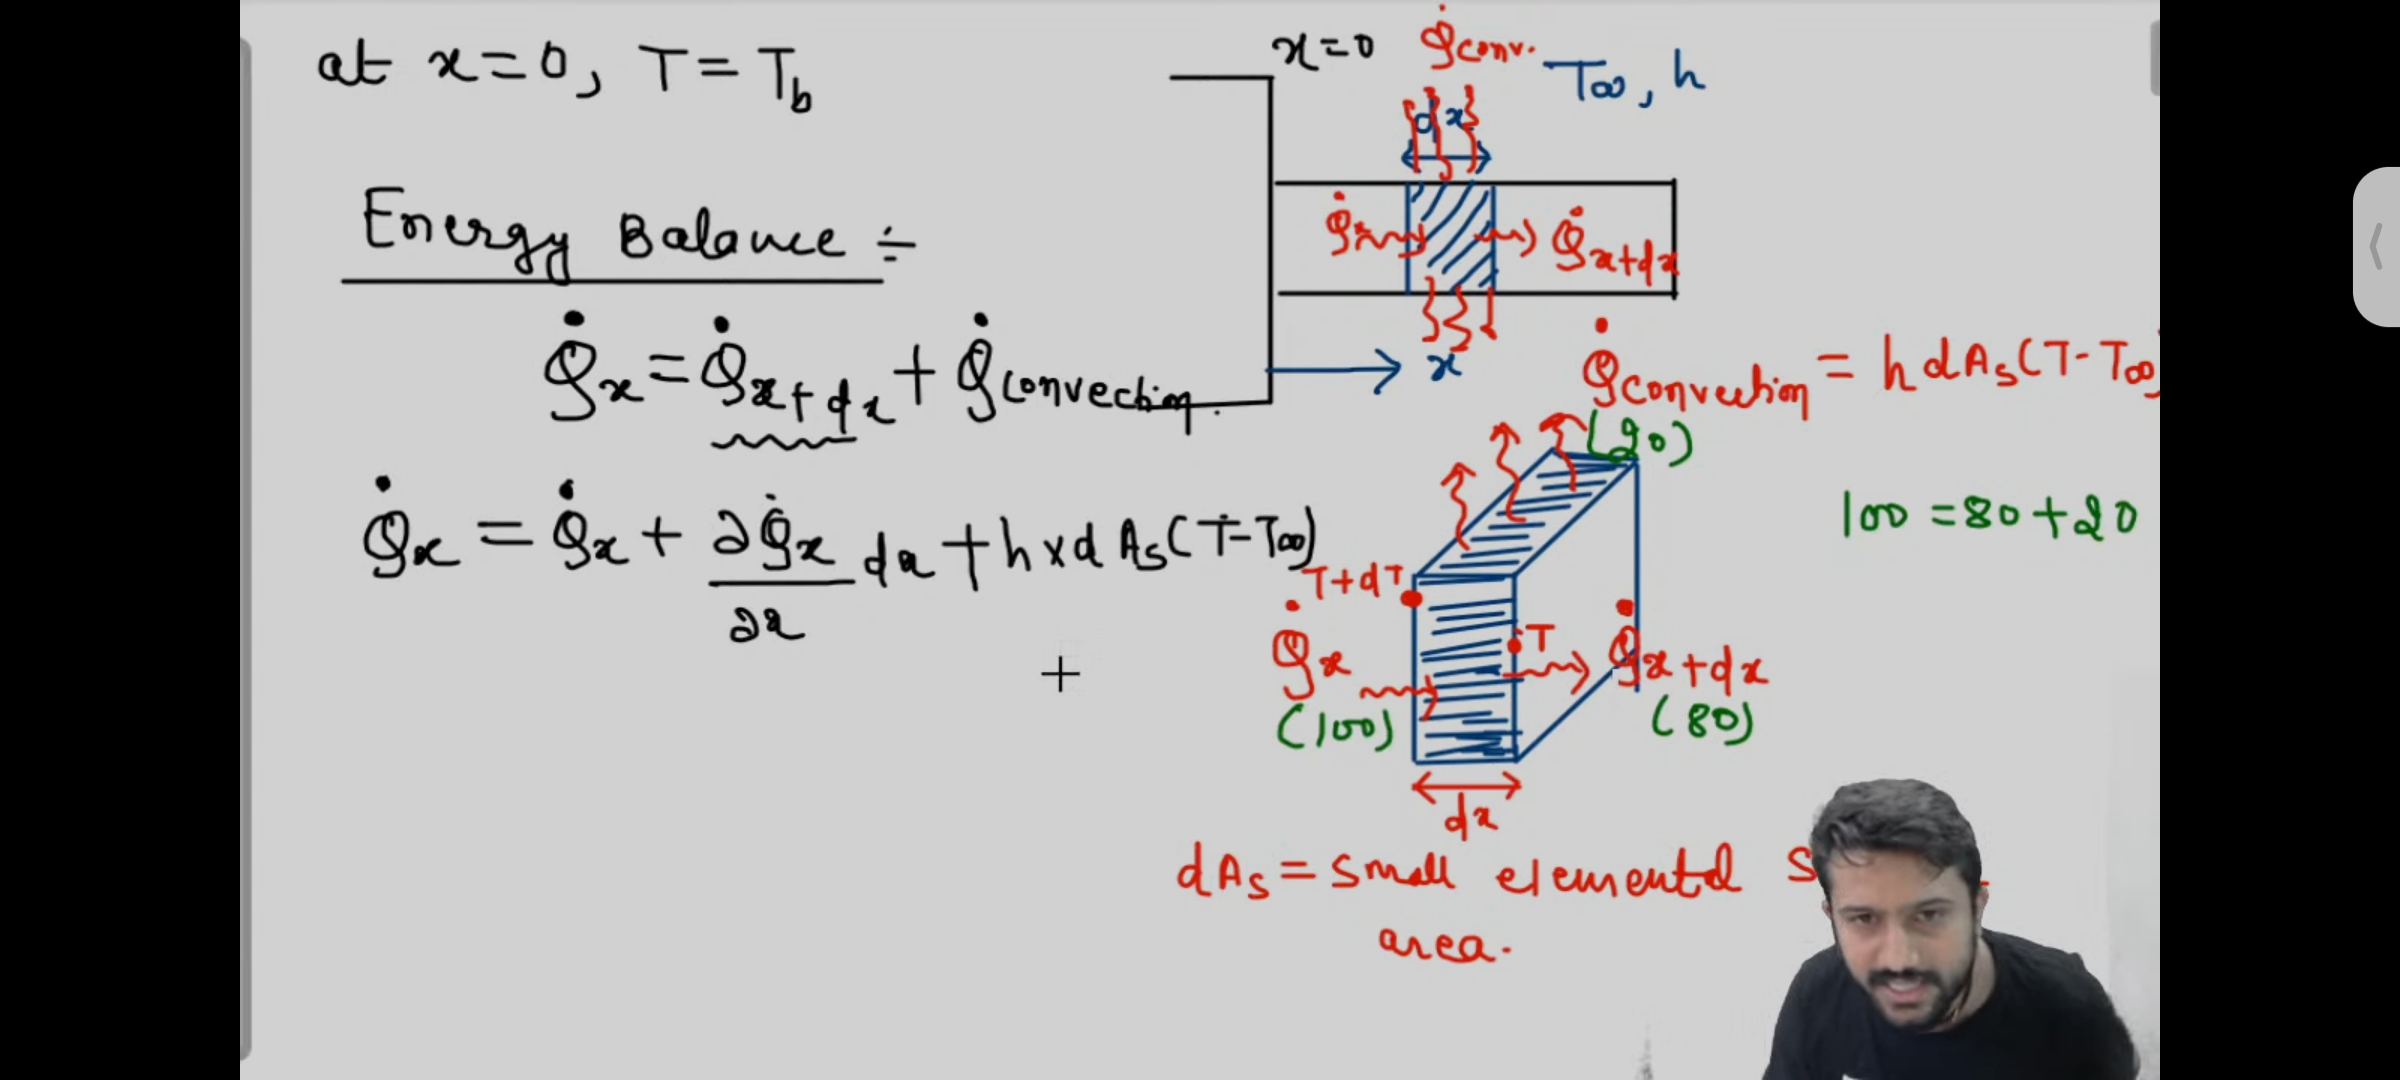 at x=0, T=Tb
Energy Balance :-
Q̇x = Q̇x+dx + Q̇convection.
Q̇x = Q̇x + ∂Q̇x/∂x dx + h×dAs(T-T∞)
x=0
Q̇conv.
T∞, h
dx
Q̇x
Q̇x+dx
x
Q̇convection = hdAs(T-T∞)
(20)
100 = 80+20
T+dT
T
Q̇x
(100)
Q̇x+dx
(80)
dx
dAs = small elemental
area.